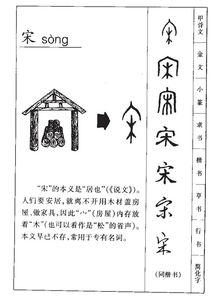 宋 sòng
“宋”的本义是“居也”(《说文》)。
人们要安居,就离不开用木材盖房
屋、做家具,因此“宀”(房屋)内存放
着“木”(也可以看作是“松”的省声)。
本义早已不存,常用于专有名词。
宋
宋
宋
宋
宋
宋
宋
(同楷书)
甲骨文
金文
小篆
隶书
楷书
草书
行书
简化字